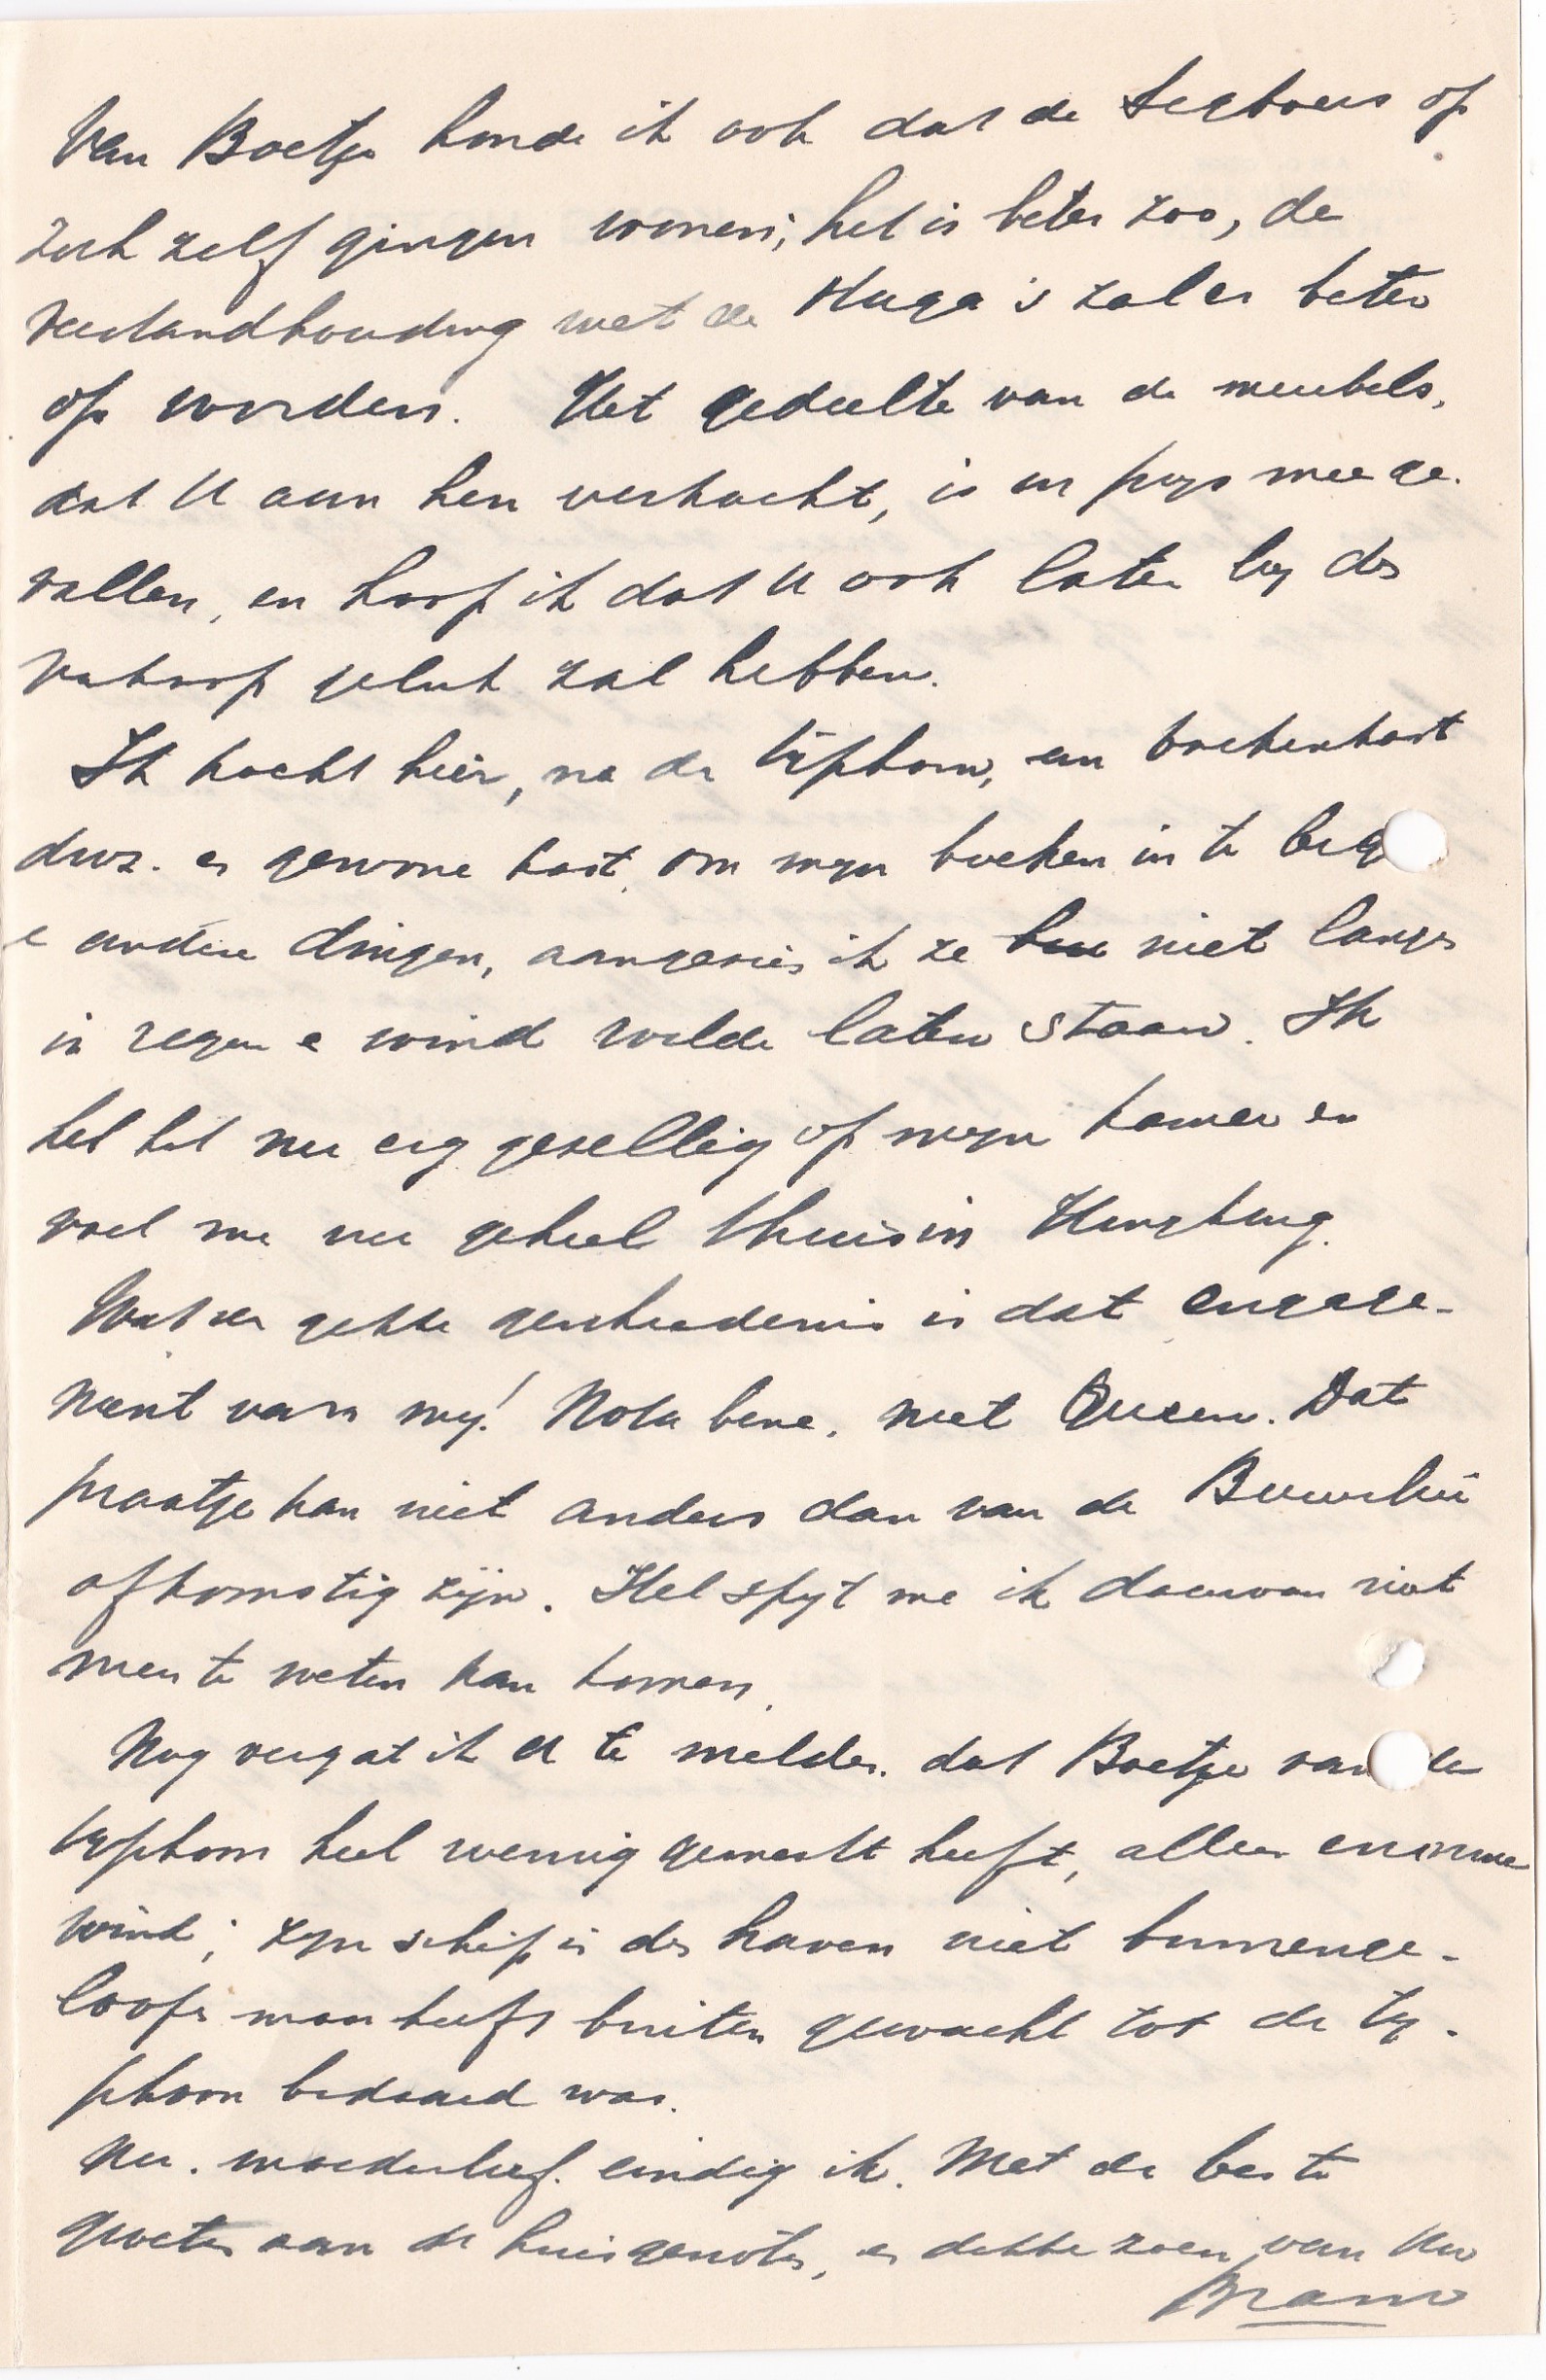 Van Boetje hoorde ik ook dat de Seeboers op
zich zelf gingen wonen; het is beter zoo, de
verstandhouding met de Haga's zal er beter
op worden. Het gedeelte van de meubels,
dat U aan hen verkocht, is en prijs meege-
vallen, en hoop ik dat U ook later bij de
verkoop geluk zal hebben.
Ik kocht hier, na de typhoon, een boekenkast
d.w.z. en gewone kast, om mijn boeken in te berg
e andere dingen, aangezien ik ze niet langer
in regen e wind wilde laten staan. Ik
heb het nu erg gezellig op mijn kamer en
voel me nu geheel thuis in Hongkong.
Wat een gekke geschiedenis is dat engage-
ment van mij! Nota bene, met Queen. Dat
praatje kan niet anders dan van de
afkomstig zijn. Het spijt me ik daarvan niet
meer te weten kan komen.
Nog vergat ik U te melden, dat Boetje van de
typhoon heel weinig gemerkt heeft, alleen enorme
wind; zijn schip is de haven niet binnenge-
loopen maar heeft buiten gewacht tot de ty-
phoon bedaard was.
Nu, moederlief, eindig ik. Met de beste
groeten aan de huisgenoten, en dikke zoen van Uw
Bram